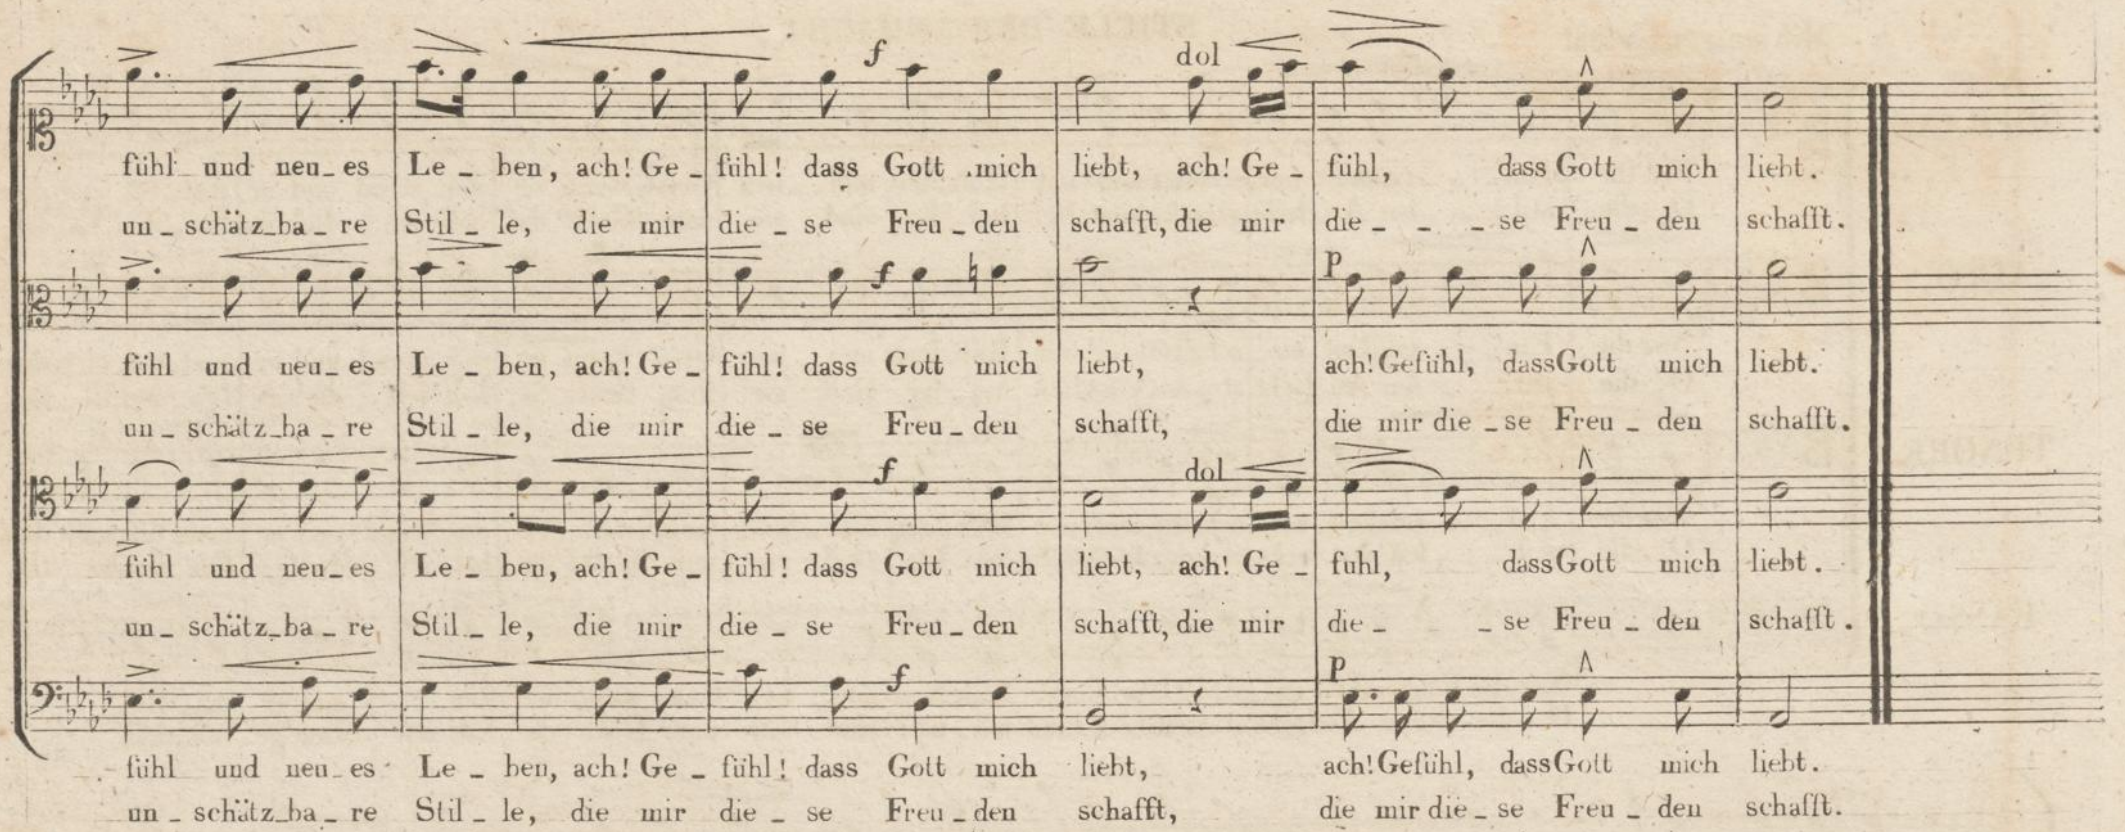 f dol
fühl und neu_es Le_ben, ach! Ge_fühl! dass Gott mich liebt, ach! Ge_fühl, dass Gott mich liebt.
un_schätz_ba_re Stil_le, die mir die_se Freu_den schafft, die mir die_ _ _se Freu_den schafft.
f p
fühl und neu_es Le_ben, ach! Ge_fühl! dass Gott mich liebt, ach! Gefühl, dass Gott mich liebt.
un_schätz_ba_re Stil_le, die mir die_se Freu_den schafft, die mir die_se Freu_den schafft.
f dol
fühl und neu_es Le_ben, ach! Ge_fühl! dass Gott mich liebt, ach! Ge_fuhl, dass Gott mich liebt.
un_schätz_ba_re Stil_le, die mir die_se Freu_den schafft, die mir die_ _se Freu_den schafft.
f p
fühl und neu_es Le_ben, ach! Ge_fühl! dass Gott mich liebt, ach! Gefühl, dass Gott mich liebt.
un_schätz_ba_re Stil_le, die mir die_se Freu_den schafft, die mir die_se Freu_den schafft.